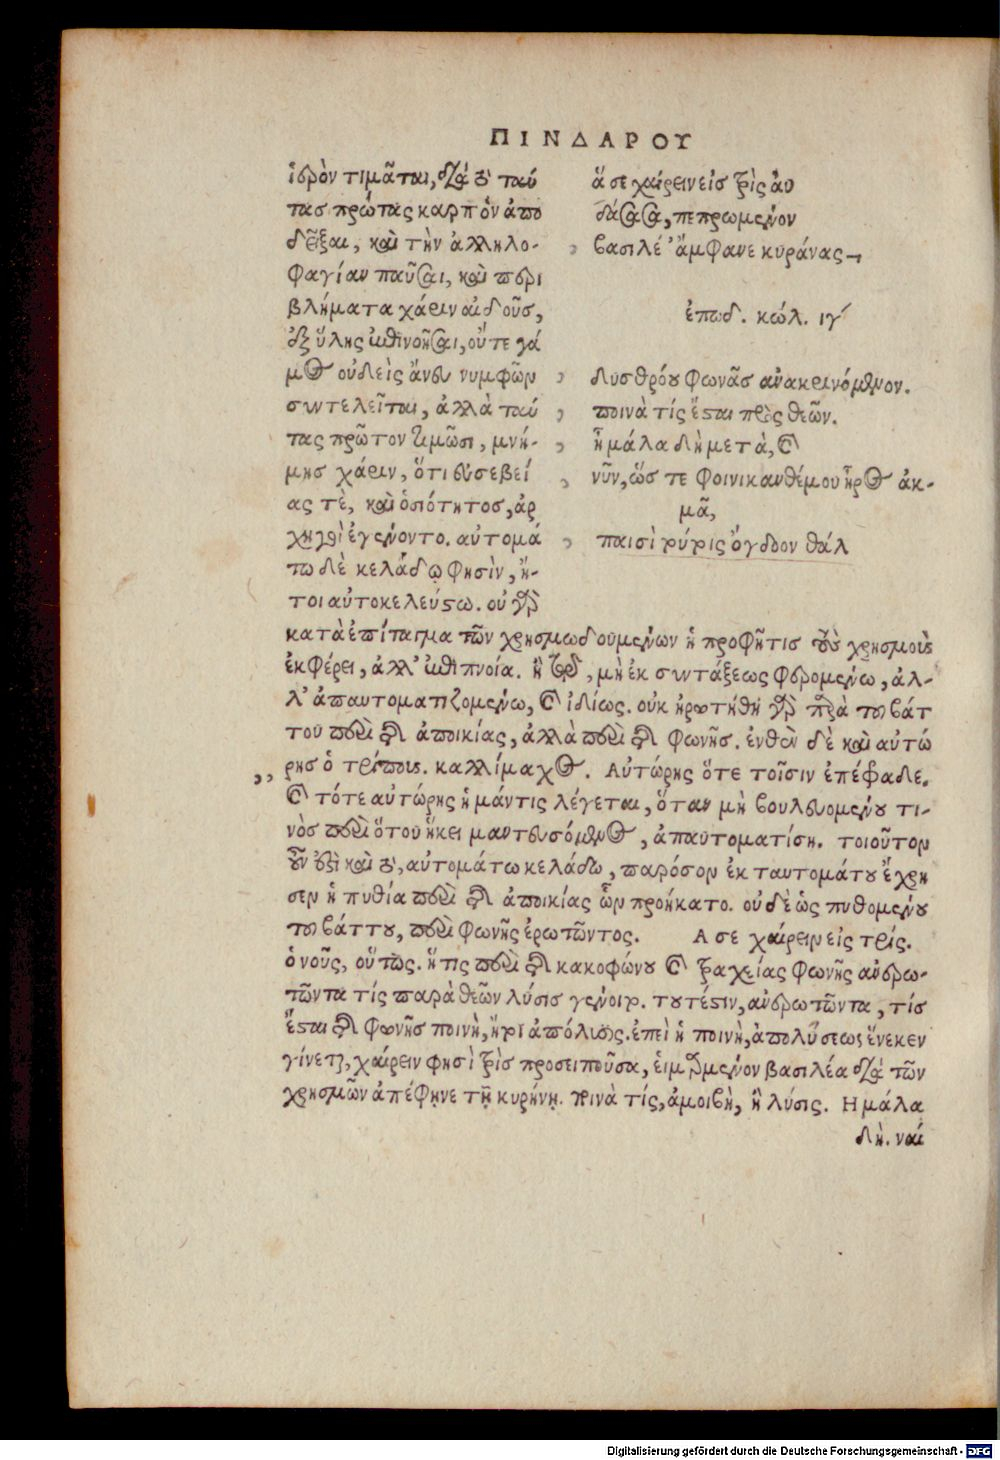 ΠΙΝΔΑΡΟΥ
ἱερὸν τιμᾶται, διὰ τὸ ταύ
τας πρώτας καρπὸν ἀπο
δεῖξαι, καὶ τὴν ἀλληλο-
φαγίαν παῦσαι, καὶ περι
βλήματα χάριν αἰδοῦς,
ἐξ ὕλης ἐπινοῆσαι, οὔτε γά
μος οὐδεὶς ἄνευ νυμφῶν
συντελεῖται, ἀλλὰ ταύ
τας πρῶτον τιμῶσι, μνή-
μης χάριν, ὅτι εὐσεβεί
ας τὲ, καὶ ὁσιότητος, ἀρ
χηγοὶ ἐγένοντο. αὐτομά
τω δὲ κελάδῳ φησὶν, ἤ-
τοι αὐτοκελεύστω. οὐ γὰρ
ἅ σε χαίρειν εἰς τρὶς αὐ
δάσασα, πεπρωμένον
βασιλέ' ἄμφανε κυράνας
ἐπωδ. κώλ. ιγ´
δυσθρόου φωνᾶς ἀνακρινόμενον.
ποινὰ τίς ἔσται πρὸς θεῶν.
ἦ μάλα δὴ μετὰ, καὶ
νῦν, ὥς τε φοινικανθέμου ἦρος ἀκ-
μᾶ,
παισὶ τούτοις ὄγδοον θάλ
κατὰ ἐπίταγμα τῶν χρησμωδουμένων ἡ προφῆτις τοὺς χρησμοὺς
ἐκφέρει, ἀλλ' ἐπιπνοία. ἢ οὕτω, μὴ ἐκ συντάξεως φερομένω, ἀλ-
λ' ἀπαυτοματιζομένω, καὶ ἰδίως. οὐκ ἠρωτήθη γὰρ παρὰ τοῦ βάτ
του περὶ τῆς ἀποικίας, ἀλλὰ περὶ τῆς φωνῆς. ἔνθεν δὲ καὶ αὐτώ
ρης ὁ τρίπους. καλλίμαχος. Αὐτώρης ὅτε τοῖσιν ἐπέφαδε.
καὶ τότε αὐτώρης ἡ μάντις λέγεται, ὅταν μὴ βουλευομένου τι-
νὸς περὶ ὅτου ἥκει μαντευσόμενος, ἀπαυτοματίση. τοιοῦτον
οὖν ἐστὶ καὶ τὸ, αὐτομάτω κελάδω, παρόσον ἐκ ταυτομάτου ἔχρη
σεν ἡ πυθία περὶ τῆς ἀποικίας ὧν προήκατο. οὐδὲ ὡς πυθομένου
τοῦ βάττου, περὶ φωνῆς ἐρωτῶντος. Α σε χαίρειν εἰς τρίς.
ὁ νοῦς, οὕτως. ἥτις περὶ τῆς κακοφώνου καὶ τραχείας φωνῆς ἀνερω-
τῶντα τίς παρὰ θεῶν λύσις γένοιτο. τουτέστιν, ἀνερωτῶντα, τίς
ἔσται τῆς φωνῆς ποινὴ, ἤτοι ἀπόλυσις. ἐπεὶ ἡ ποινὴ, ἀπολύσεως ἕνεκεν
γίνεται, χαίρειν φησὶ τρὶς προσειποῦσα, εἱμαρμένον βασιλέα διὰ τῶν
χρησμῶν ἀπέφηνε τῇ κυρήνῃ. Ποινὰ τίς, ἀμοιβὴ, ἢ λύσις. Η μάλα
δὴ. ναί
Digitalisierung gefördert durch die Deutsche Forschungsgemeinschaft - DFG